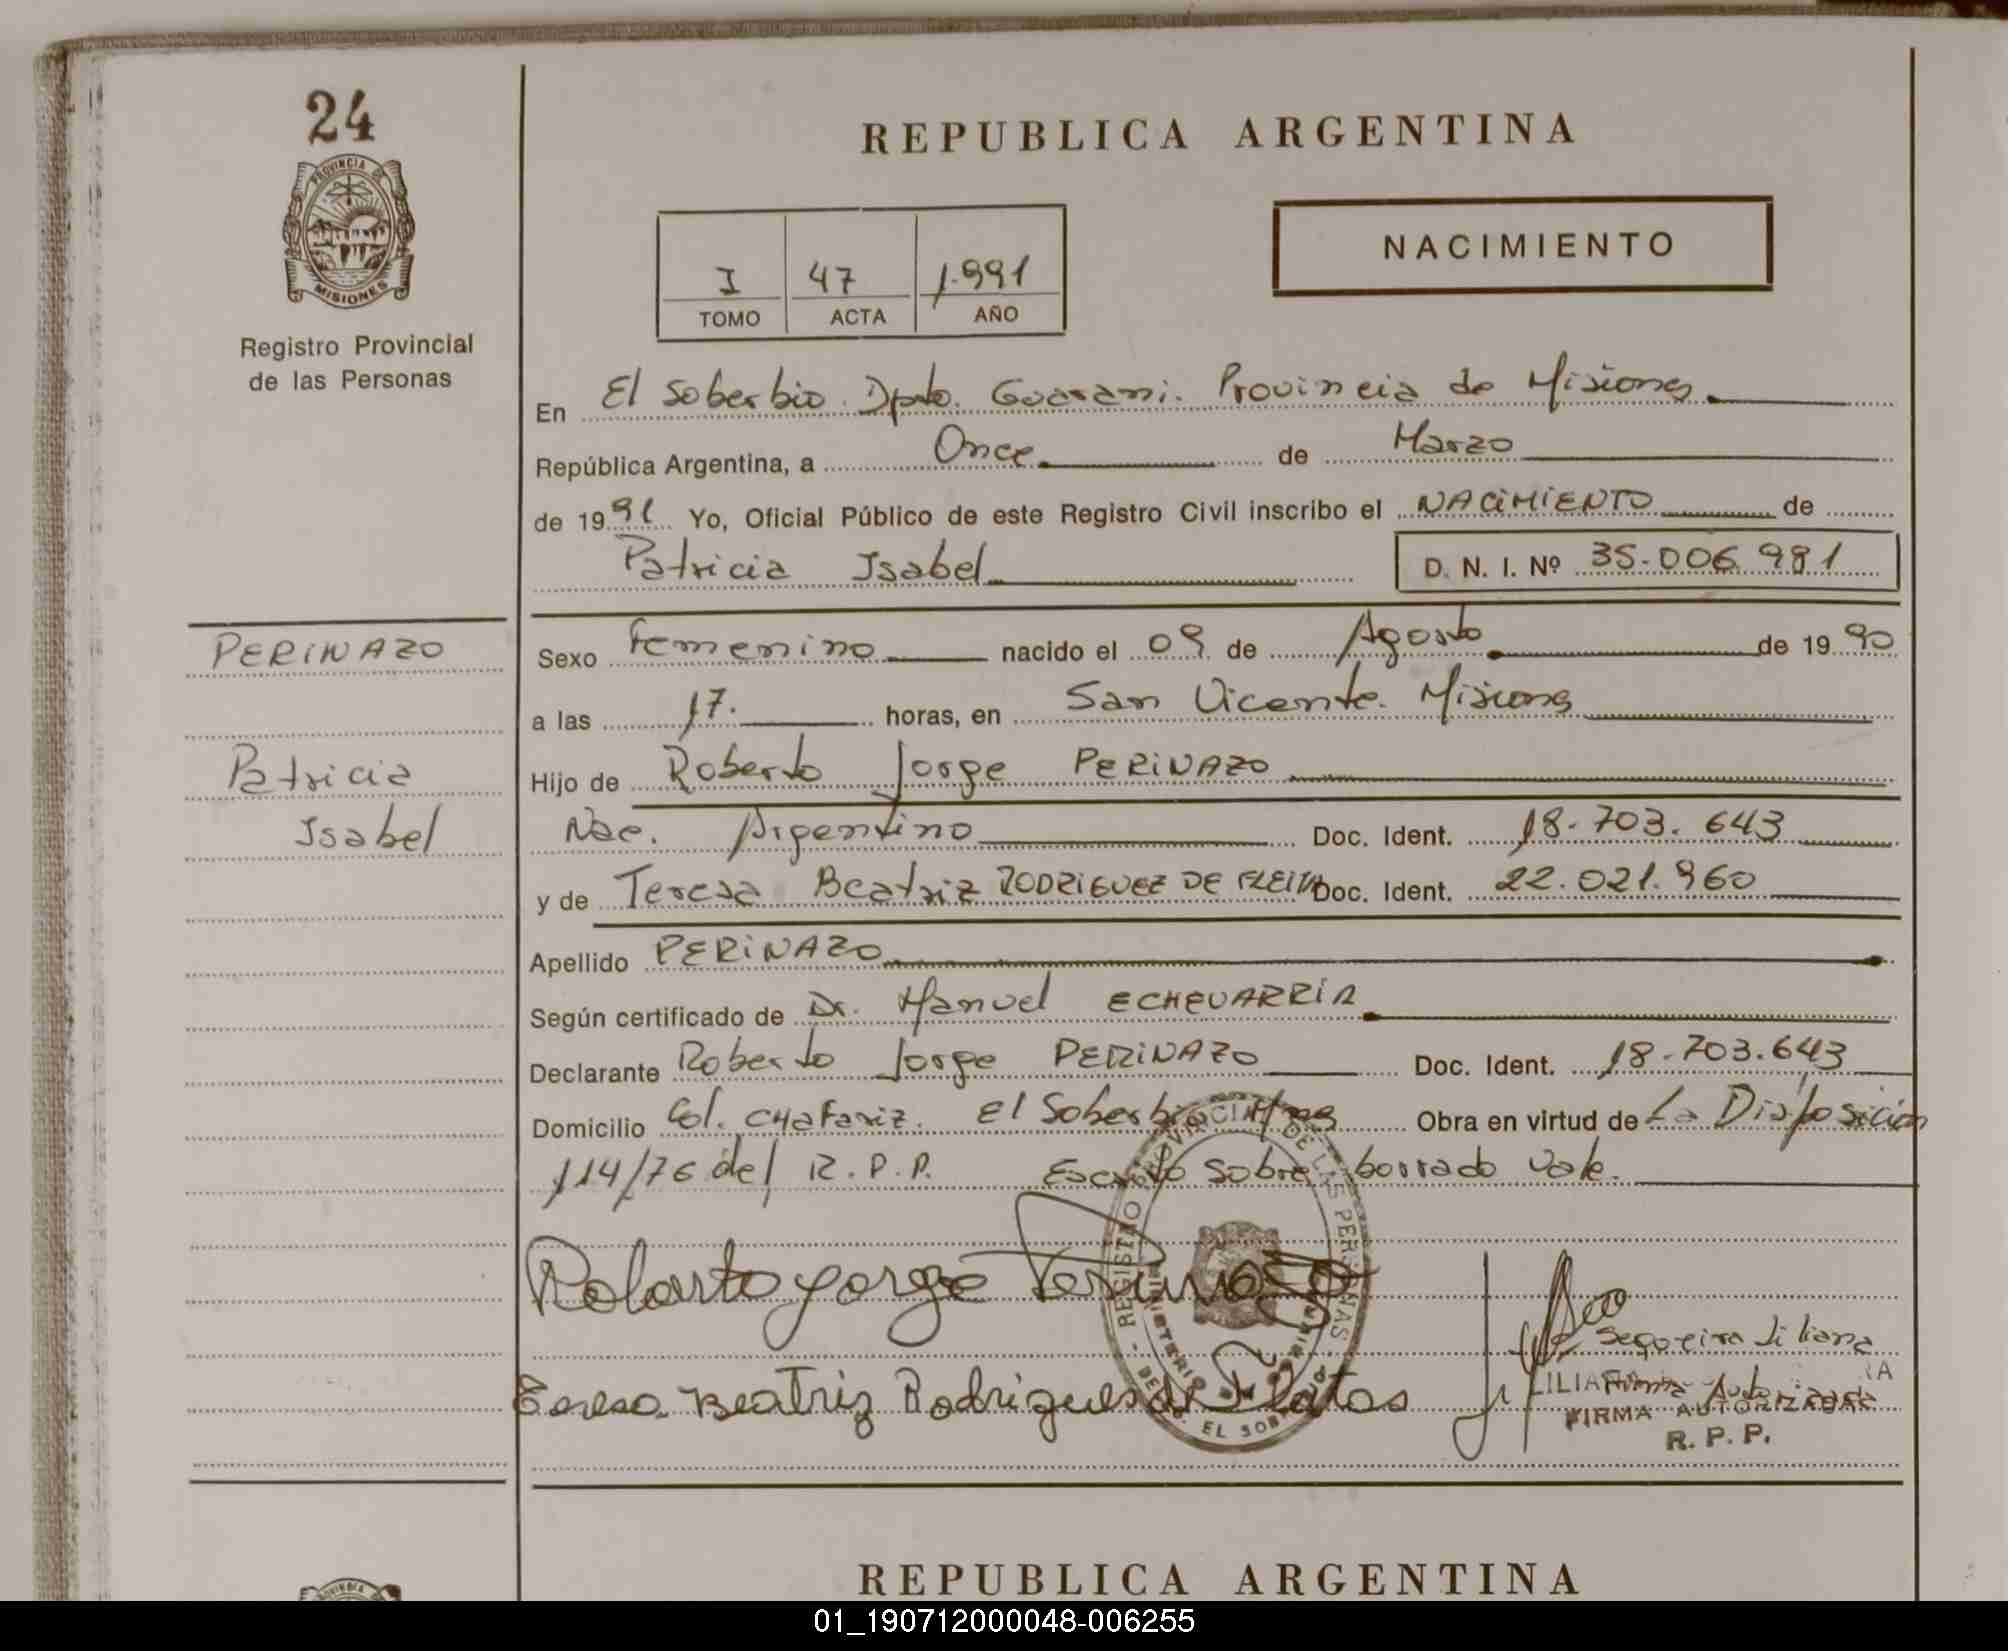 24
PROVINCIA DE
MISIONES
Registro Provincial
de las Personas
REPUBLICA ARGENTINA
NACIMIENTO
I 47 1.991
TOMO ACTA AÑO
En El Soberbio. Dpto. Guarani. Provincia de Misiones
República Argentina, a Once de Marzo
de 1991 Yo, Oficial Público de este Registro Civil inscribo el NACIMIENTO de
Patricia Isabel D. N. I. Nº 35.006.981
PERINAZO
Patricia
Isabel
Sexo Femenino nacido el 09 de Agosto de 1990
a las 17. horas, en San Vicente. Misiones
Hijo de Roberto Jorge PERINAZO
Nac. Argentino Doc. Ident. 18.703.643
y de Teresa Beatriz RODRIGUEZ DE Doc. Ident. 22.021.960
Apellido PERINAZO
Según certificado de Dr. Manuel ECHEVARRIA
Declarante Roberto Jorge PERINAZO Doc. Ident. 18.703.643
Domicilio Col. CHAFARIZ. El Soberbio Mnes Obra en virtud de La Disposición
114/76 del R.P.P. Escrito sobre borrado vale.
REGISTRO PROVINCIAL DE LAS PERSONAS
MINISTERIO DE GOBIERNO
Roberto Jorge Perinazo
Teresa Beatriz Rodrigues de
Sequeira Liliana
Firma Autorizada
FIRMA AUTORIZADA
R. P. P.
REPUBLICA ARGENTINA
01_190712000048-006255